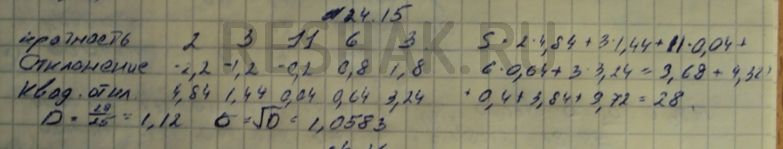 №24.15
кратность 2 3 11 6 3 S = 2·4,84 + 3·1,44 + 11·0,04 +
Отклонение -2,2 -1,2 -0,2 0,8 1,8 6·0,64 + 3·3,24 = 9,68 + 4,32
Квад. откл 4,84 1,44 0,04 0,64 3,24 + 0,4 + 3,84 + 9,72 = 28.
D = 28/25 = 1,12 σ = √D = 1,0583
RESHAK.RU